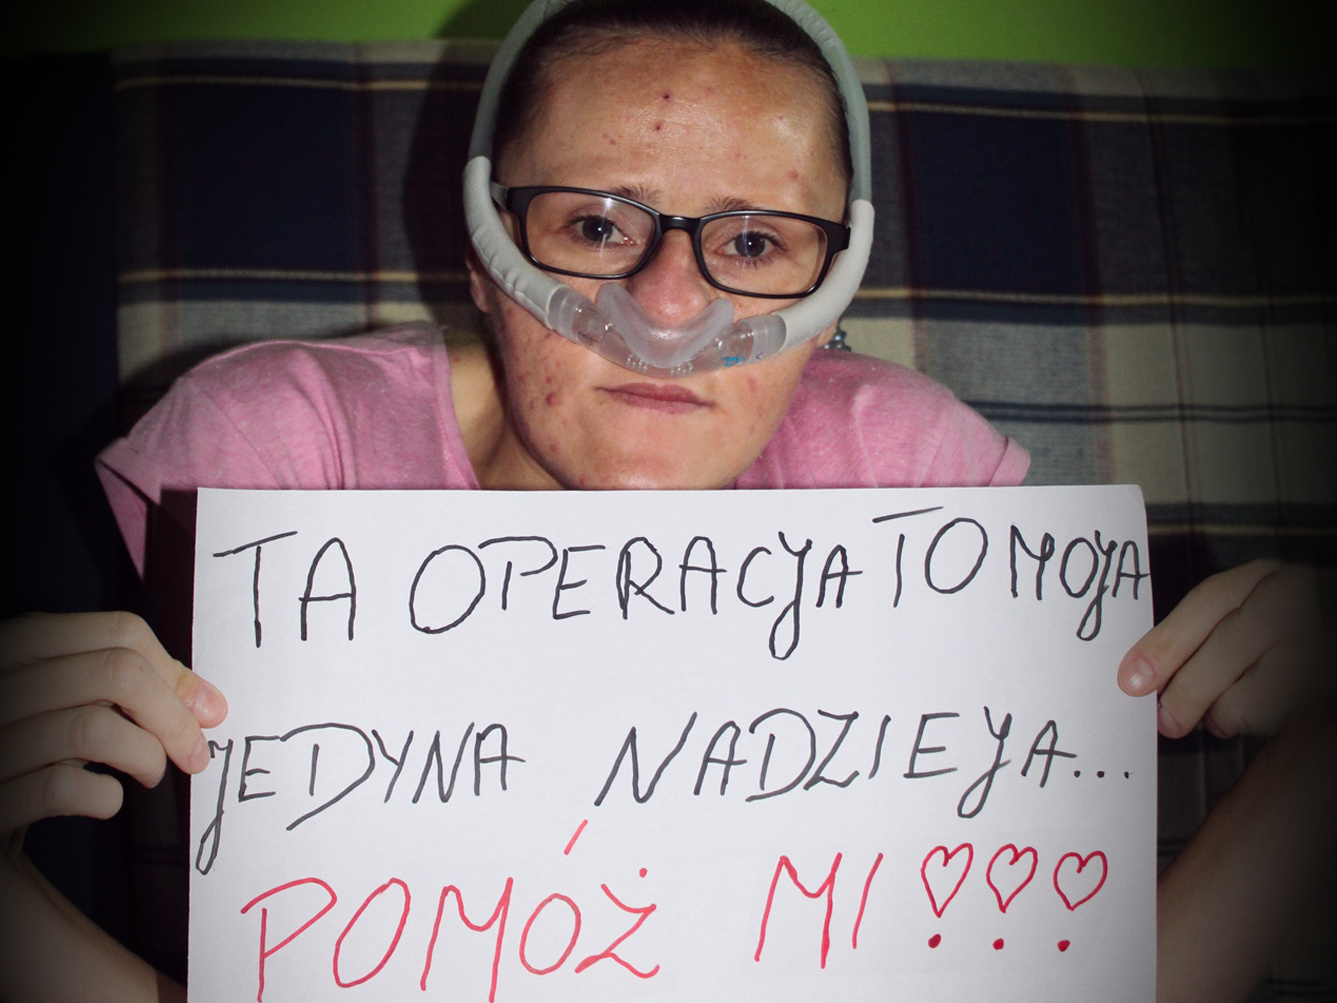 TA OPERACJA TO MOJA
JEDYNA NADZIEJA...
POMÓŻ MI